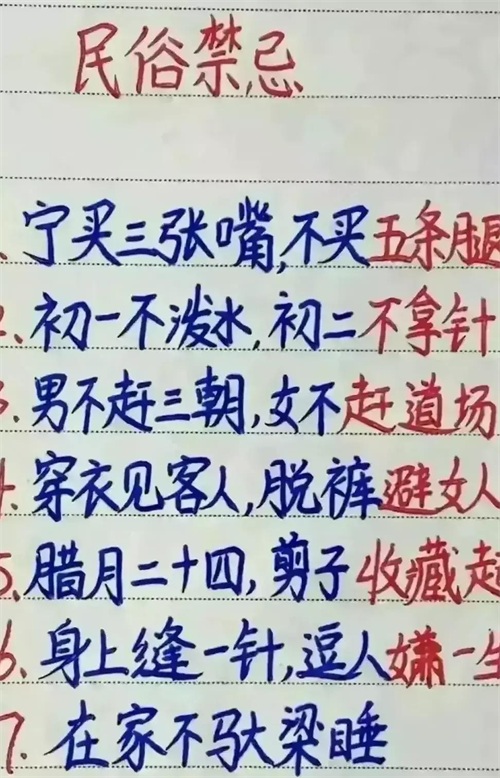 民俗禁忌
、宁买三张嘴,不买五条腿
2、初一不泼水,初二不拿针
3.男不赶三朝,女不赶道场
4.穿衣见客人,脱裤避女人
5、腊月二十四,剪子收藏起
6、身上缝一针,逗人嫌一生
7.在家不驮梁睡